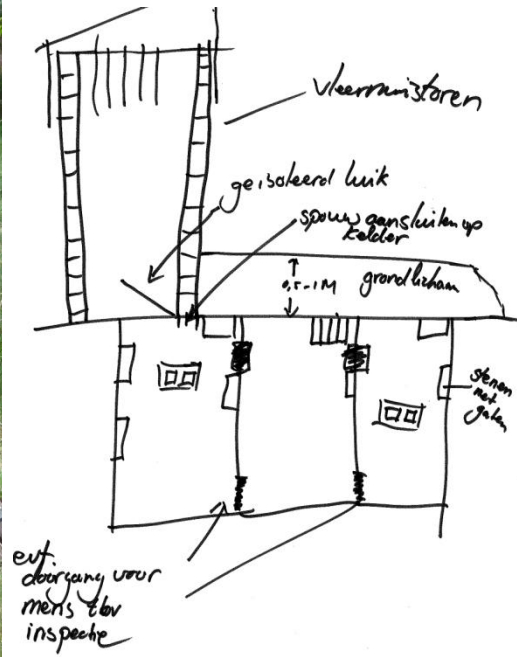 vleermuistoren
geisoleerd luik
spouw aansluiten op
kelder
0,5-1M
grondlichaam
stenen
met
gaten
evt.
doorgang voor
mens tbv
inspectie